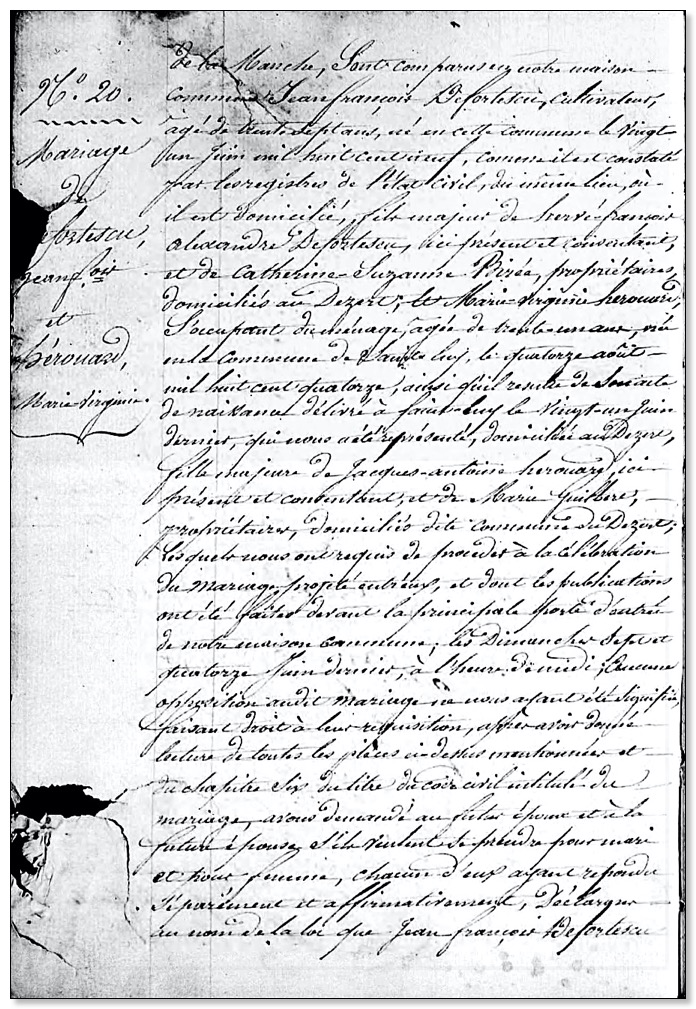 de la Manche, Sont comparus en notre maison
commune Jean françois Defortescu, cultivateur,
agé de trente-sept ans, né en cette commune le Vingt
un Juin mil huit cent neuf, comme il est constaté
par les registres de l'état civil, du même lieu, où
il est domicilié, fils majeur de hervé françois
alexandre Defortescu, ici présent et consentant,
et de Catherine-Suzanne Vizée, propriétaires,
domiciliés au Dezert; et Marie-Virginie herouard,
S'occupant du ménage, agée de trente-un ans, née
en la Commune de le quatorze août
mil huit cent quatorze, ainsi qu'il resulte de Son acte
de naissance délivré à le Vingt-un Juin
dernier, qui nous a été représenté, domiciliée au Dezert,
fille majeure de Jacques-antoine herouard, ici
présent et consentant, et de Marie
propriétaires, domiciliés dite Commune du Dezert;
lesquels nous ont requis de procéder à la Célébration
du Mariage projeté entr'eux, et dont les publications
ont été faites devant la principale porte d'entrée
de notre maison Commune, les Dimanches Sept et
quatorze Juin dernier, à l'heure de midi; Aucune
opposition audit mariage ne nous ayant été Signifiée,
faisant droit à leur requisition, après avoir donné
lecture de toutes les pièces ci-dessus mentionnées et
du chapitre Six du titre du code civil intitulé du
mariage, avons demandé au futur époux et à la
future épouse S'ils veulent Se prendre pour mari
et pour femme, chacun d'eux ayant répondu
Séparément et affirmativement, Déclarons
au nom de la loi que Jean françois Defortescu
N.º 20.
Mariage
de
efortescu,
Jean f.ois
et
hérouard,
Marie Virginie.